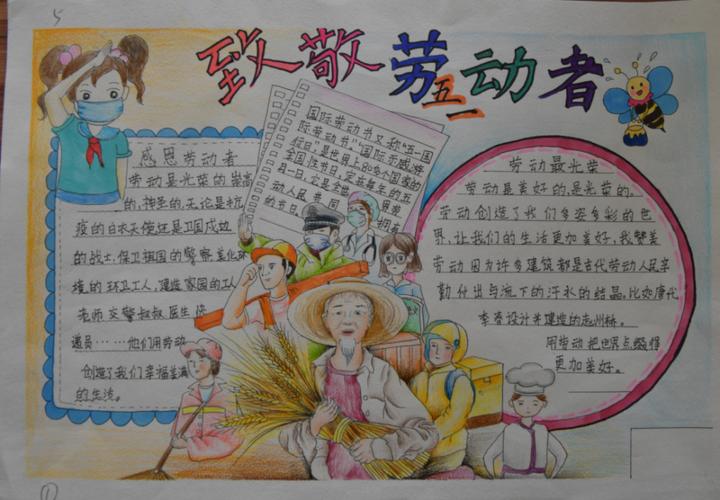 5
致敬劳动者
五一
感恩劳动者
劳动是光荣的崇高
的,神圣的,无论是抗
疫的白衣天使还是卫国戍边
的战士,保卫祖国的警察,美化环
境的环卫工人,建造家园的工人
老师 交警叔叔 医生 快
递员……他们用劳动
创造了我们幸福美满
的生活。
国际劳动节又称“五一国
际劳动节”“国际示威游
行日”是世界上80多个国家的
全国性节日,定在每年的五
月一日,它是全世界
动人民共同拥有
的节日
劳动最光荣
劳动是美好的,是光荣的。
劳动创造了我们多姿多彩的世
界,让我们的生活更加美好,我赞美
劳动因为许多建筑都是古代劳动人民辛
勤付出与流下的汗水的结晶。比如唐代
李春设计并建造的赵州桥。
用劳动把世界点缀得
更加美好。
①